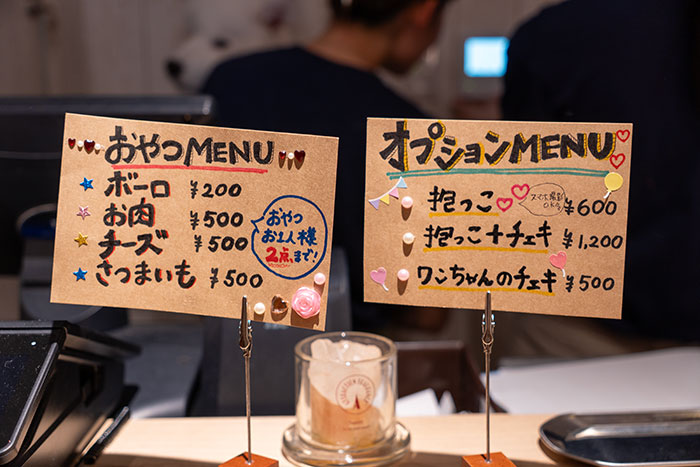 おやつMENU
ボーロ ¥200
お肉 ¥500
チーズ ¥500
さつまいも ¥500
おやつ
お1人様
2点まで!
オプションMENU
抱っこ ¥600
スマホ撮影
OK
抱っこ+チェキ ¥1,200
ワンちゃんのチェキ ¥500